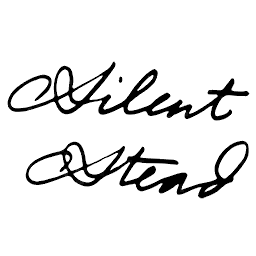 Silent
Stead